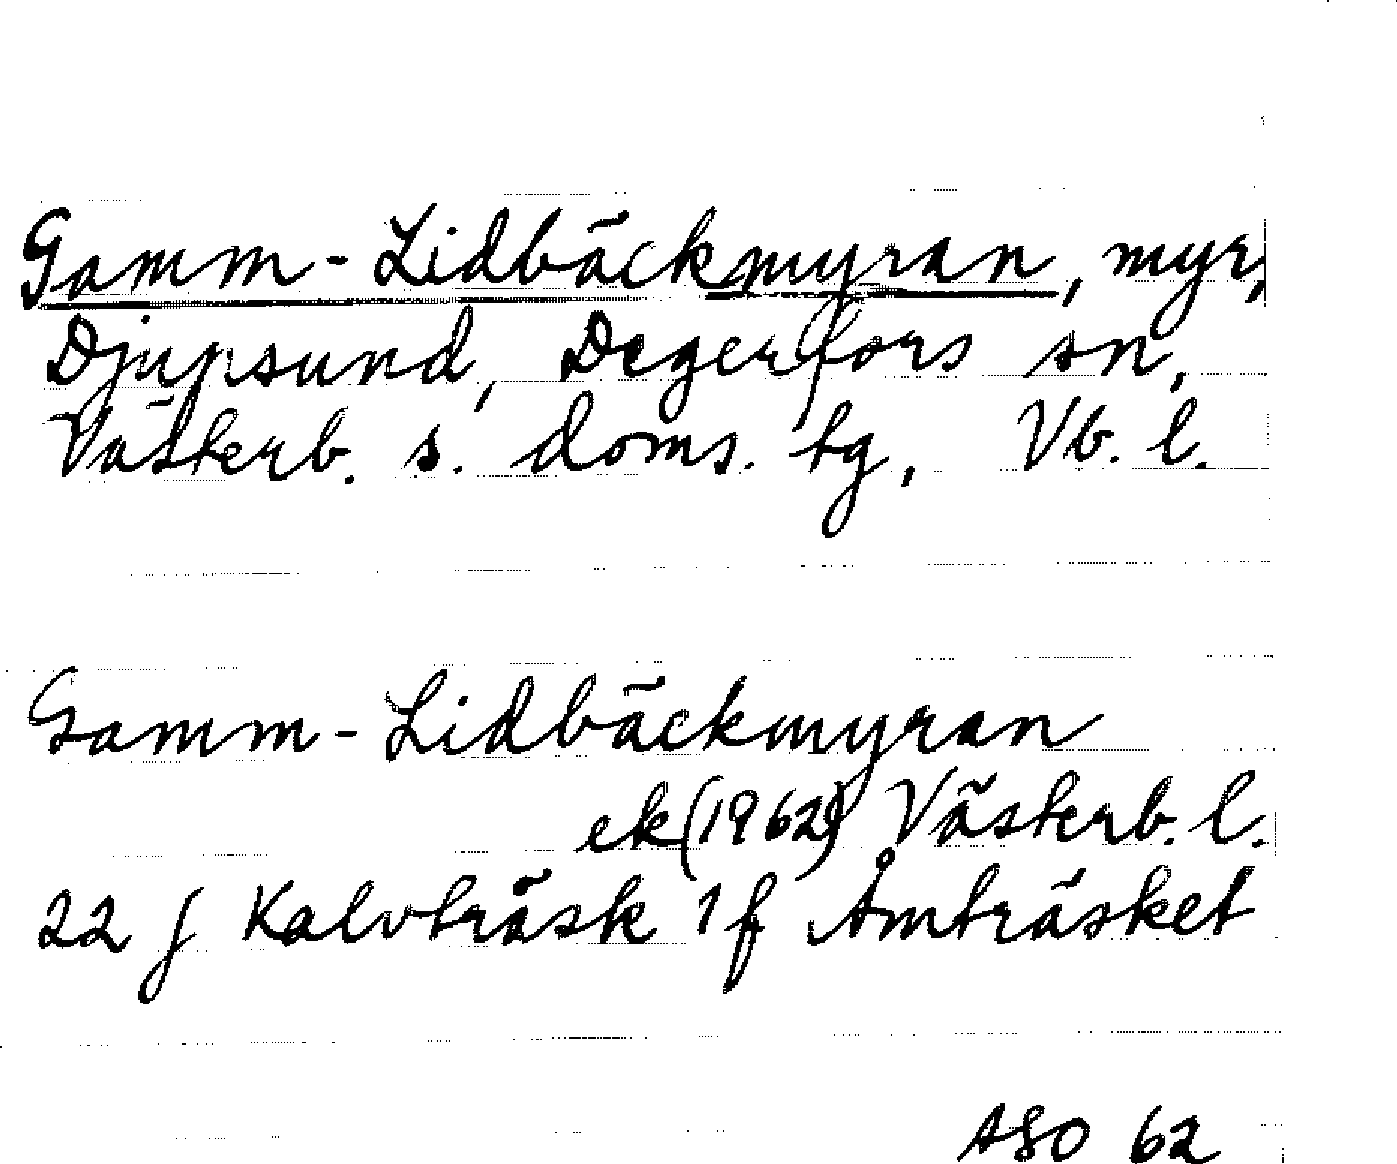 Gamm-Lidbäckmyran, myr,
Djupsund, Degerfors sn,
Västerb. s. doms. tg, Vb. l.
Gamm-Lidbäckmyran
ek (1962) Västerb. l.
22 J Kalvträsk 1 f Åmträsket
ASO 62